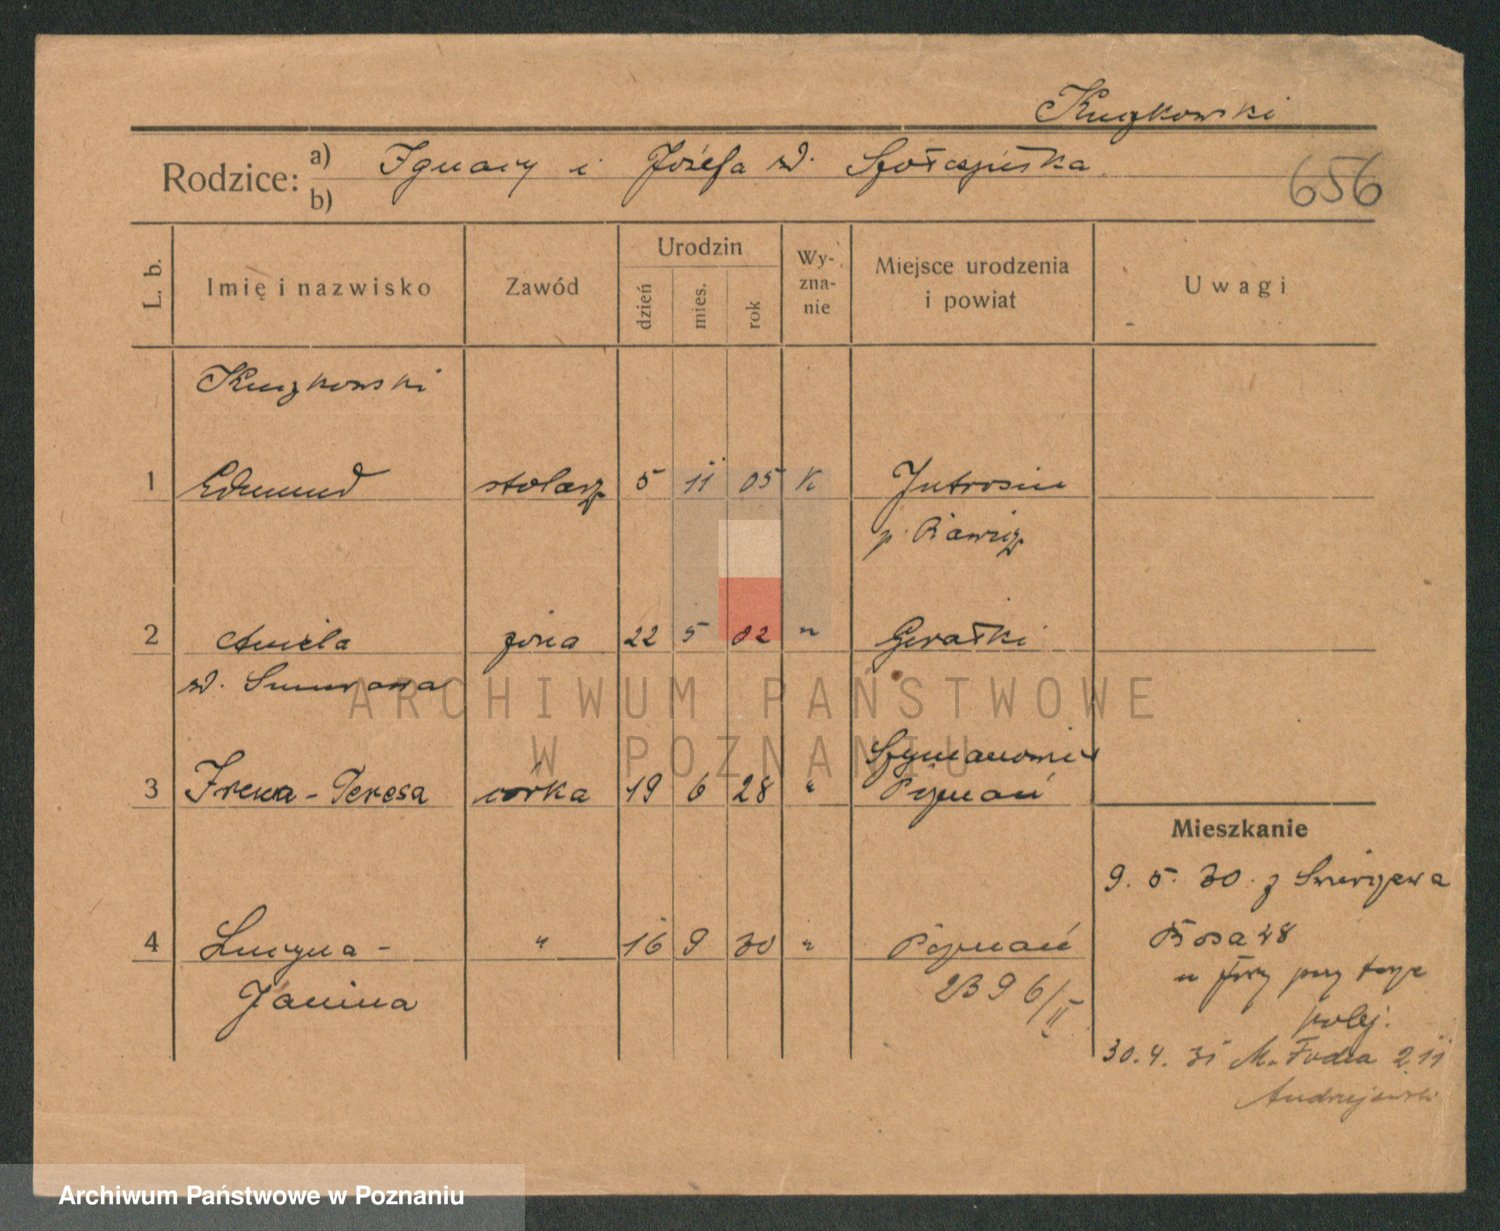 Kuczkowski
Rodzice: a) Ignacy i Józefa zd.
b)
656
L. b.
Imię i nazwisko
Zawód
Urodzin
dzień
mies.
rok
Wy-
zna-
nie
Miejsce urodzenia
i powiat
Uwagi
Kuczkowski
1 Edmund stolarz 5 11 05 k Jutrosin
p. Rawicz
2 Aniela żona 22 5 02 " Gorałki
zd.
3 Irena-Teresa córka 19 6 28 " Poznań
Mieszkanie
9. 5. 30. z
4 Lucyna- " 16 9 30 " Poznań
Janina
2396/II
Rosa 28
przy
kolej.
30. 4. 31 M.
Andrzejewski
ARCHIWUM PAŃSTWOWE
W POZNANIU
Archiwum Państwowe w Poznaniu